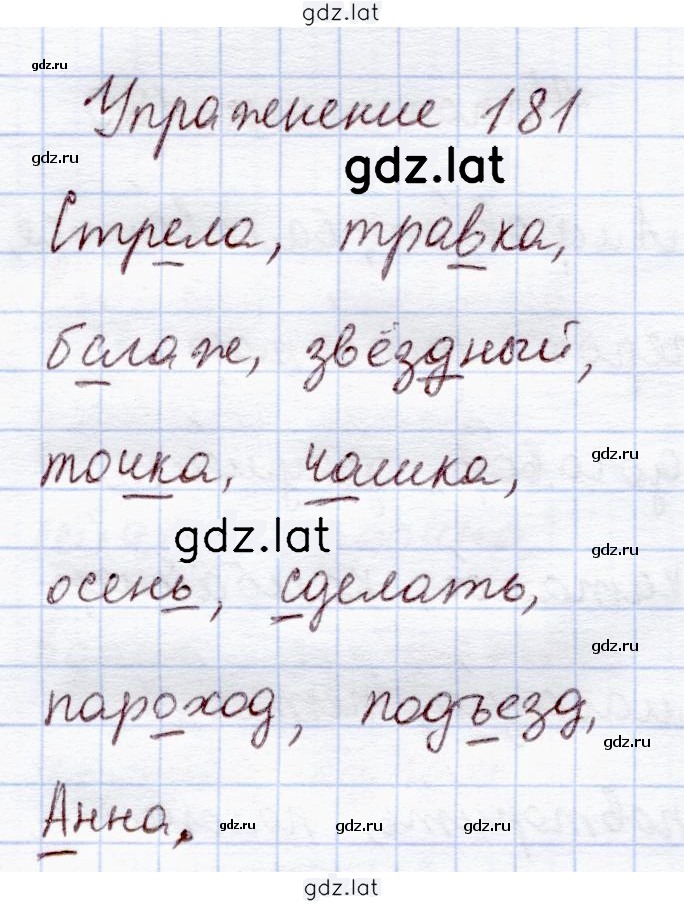 gdz.lat
gdz.ru
Упражнение 181
gdz.ru
gdz.lat
Стрела, травка,
бслаже, звёздный,
точка, чашка,
gdz.ru
gdz.lat
gdz.ru
осень, сделать,
gdz.ru
пароход, подъезд,
gdz.ru
Анна.
gdz.ru gdz.ru gdz.ru
gdz.lat